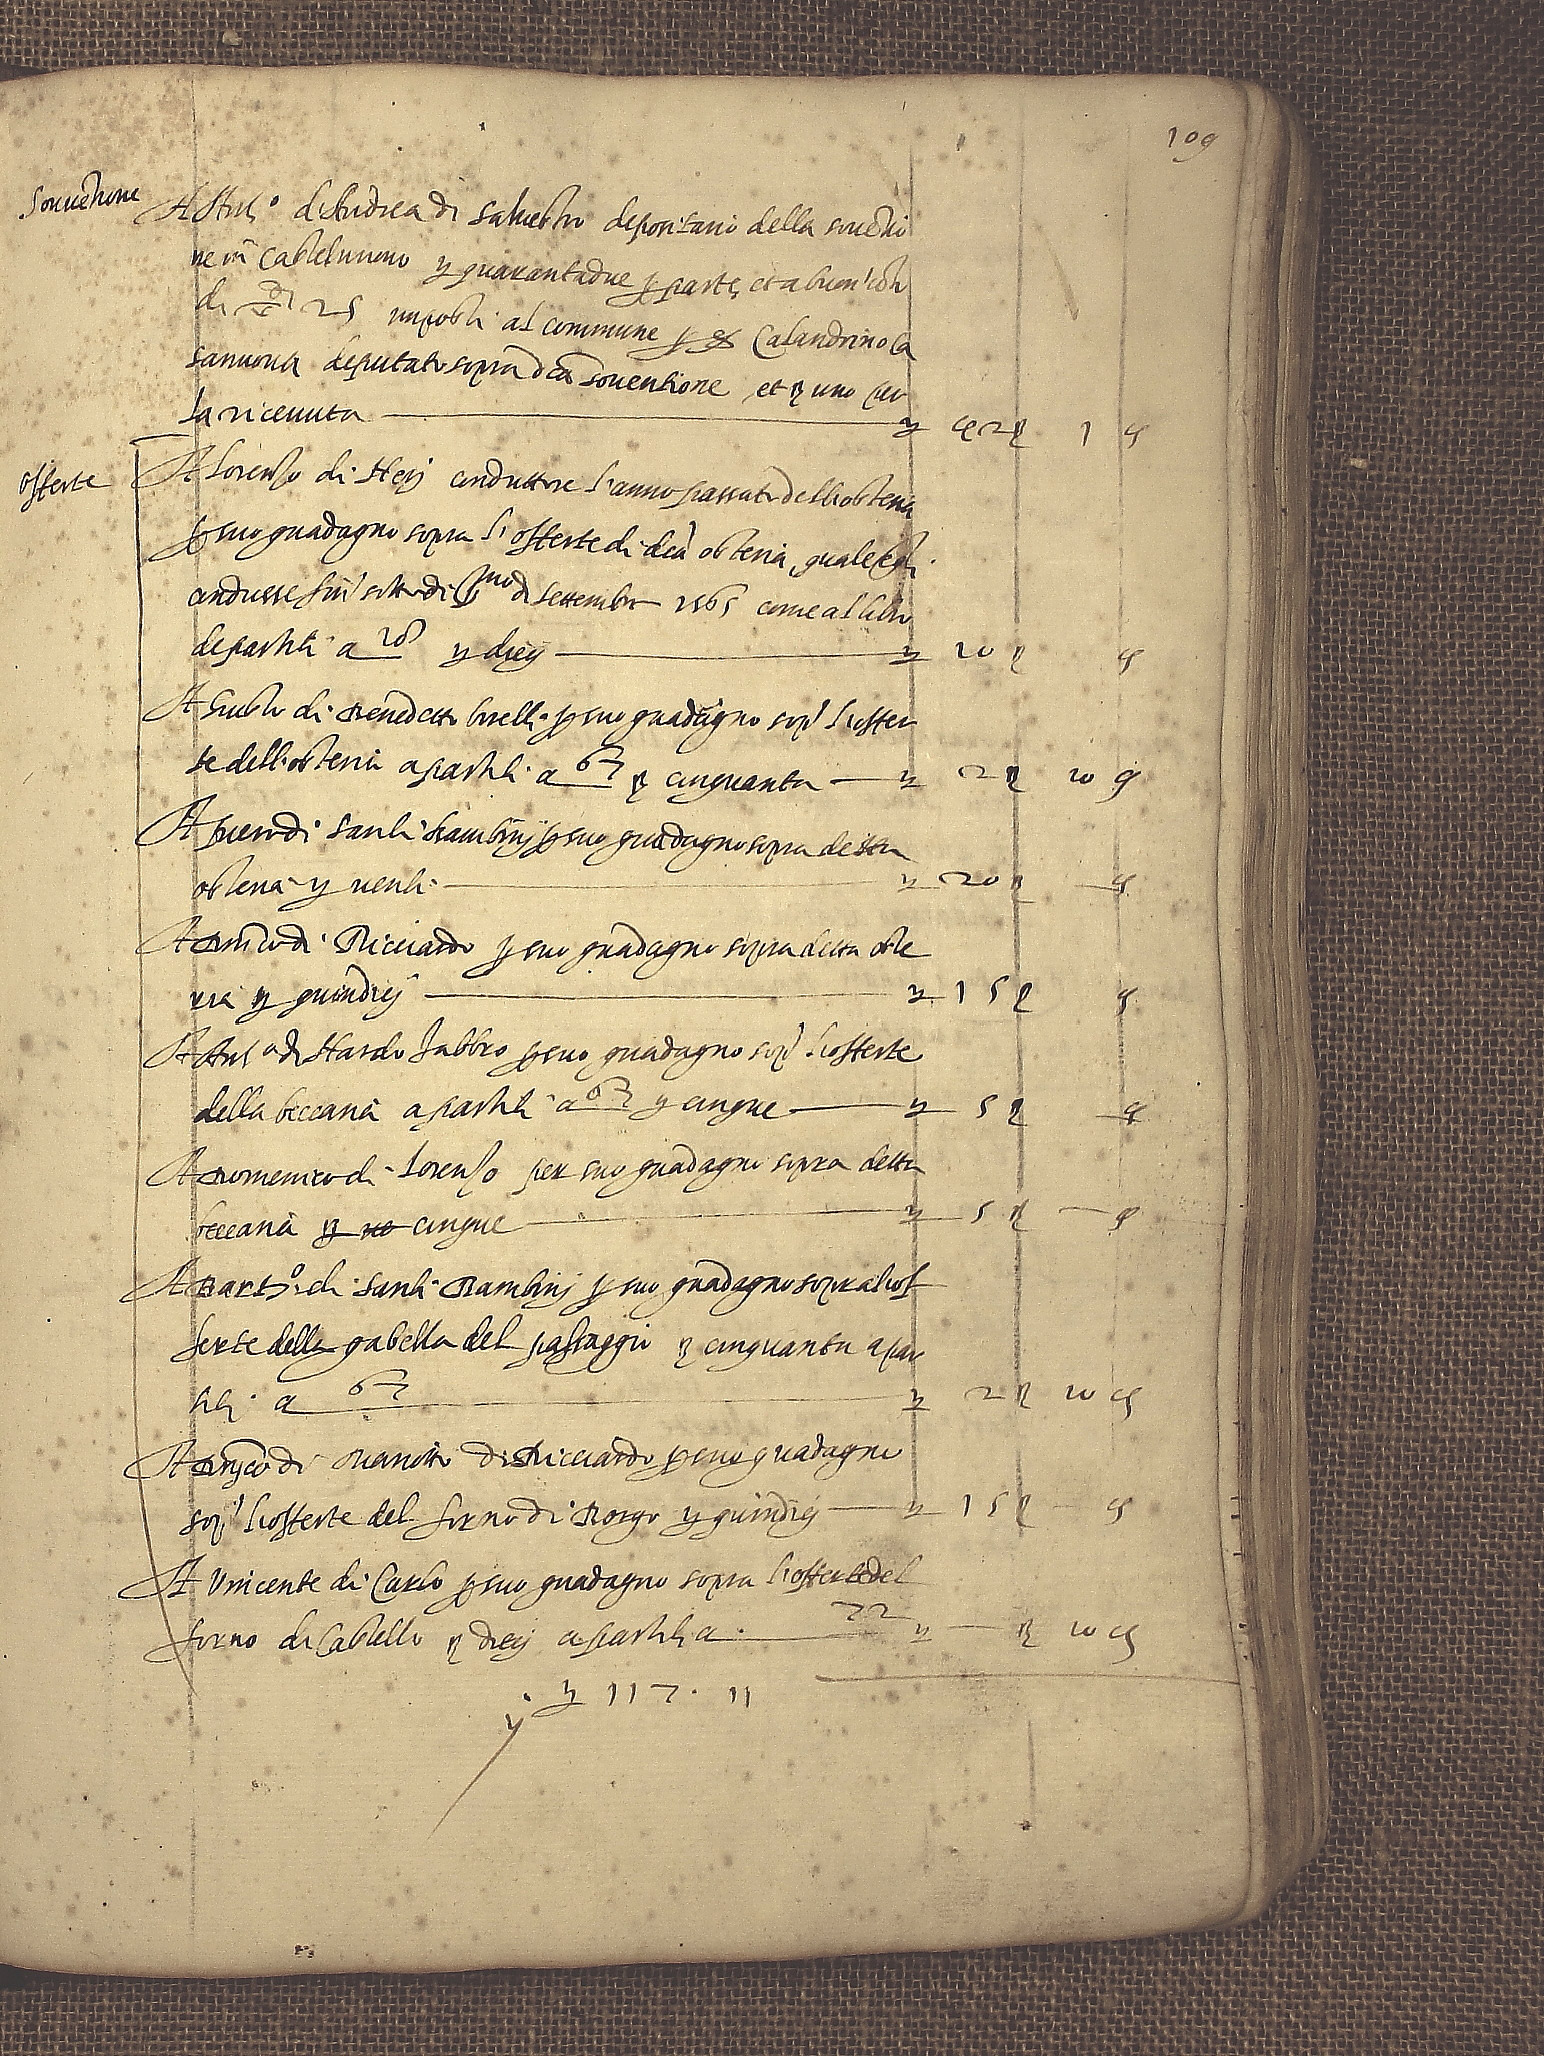 109
Souuētione A Antº d'Andrea di Saluestro depositario della souētio
ne in Castelnuouo quarantadue p parte, et a buon cōto
di 25 imposti al commune p Calandrino Ca
sanuoua deputato sopra dca souentione et p uno per
la riceuuta 42 1
offerte A Lorenzo di Nerj conduttore l'anno passato dell'osteria
p suo guadagno sopra l'offerte di dca osteria, quale egli
condusse sin sotto di pmo di settembre 1565 come al libro
de partiti a 108 diecj 10
A Giusto di Benedetto borelli p suo guadagno sopa l'offer
te dell'osteria a partiti a 67 cinquanta 2 10
A piero di Santi Bambinj p suo guadagno sopra detta
osteria venti 20
A Dnico di Ricciardo p suo guadagno sopra detta oste
ria quindicj 15
A Antº di Nardo fabbro p suo guadagno sopa l'offerte
della beccaria a partiti a 67 cinque 5
A Domenico di Lorenzo per suo guadagno sopra detta
beccaria cinque 5
A Bartº di Santi Bambinj p suo guadagno sopra l'of
ferte della gabella del passaggio cinquanta a par
titi a 67 2 10
A Dnico di Mariotto di Ricciardo p suo guadagno
sopa l'offerte del forno di Borgo quindicj 15
A Vincente di Carlo p suo guadagno sopra l'offerte del
forno di Castello diecj a partiti a 72 10
117. 11